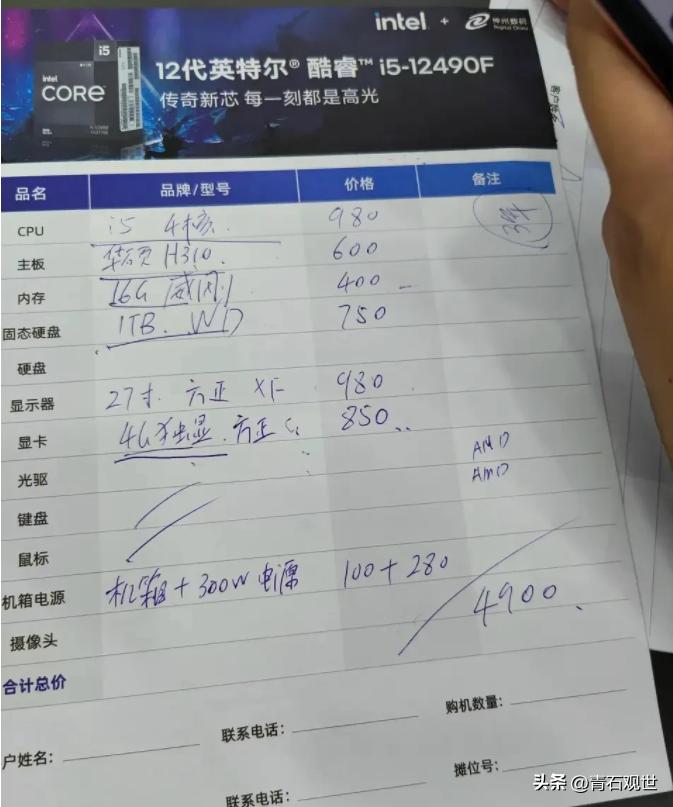 intel + 神州数码
Digital China
i5
intel
CORE
12代英特尔® 酷睿™ i5-12490F
传奇新芯 每一刻都是高光
品名 品牌/型号 价格 备注
CPU i5 4核. 980
主板 华硕 H310. 600
内存 16G 威刚 400
固态硬盘 1TB. WD 750
硬盘
显示器 27寸. 方正 980
显卡 4G独显. 方正 850
光驱 AMD
AMD
键盘
鼠标
机箱电源 机箱+300W 电源 100+280
4900
摄像头
合计总价
户姓名: 联系电话: 购机数量:
联系电话: 摊位号:
头条 @青石观世